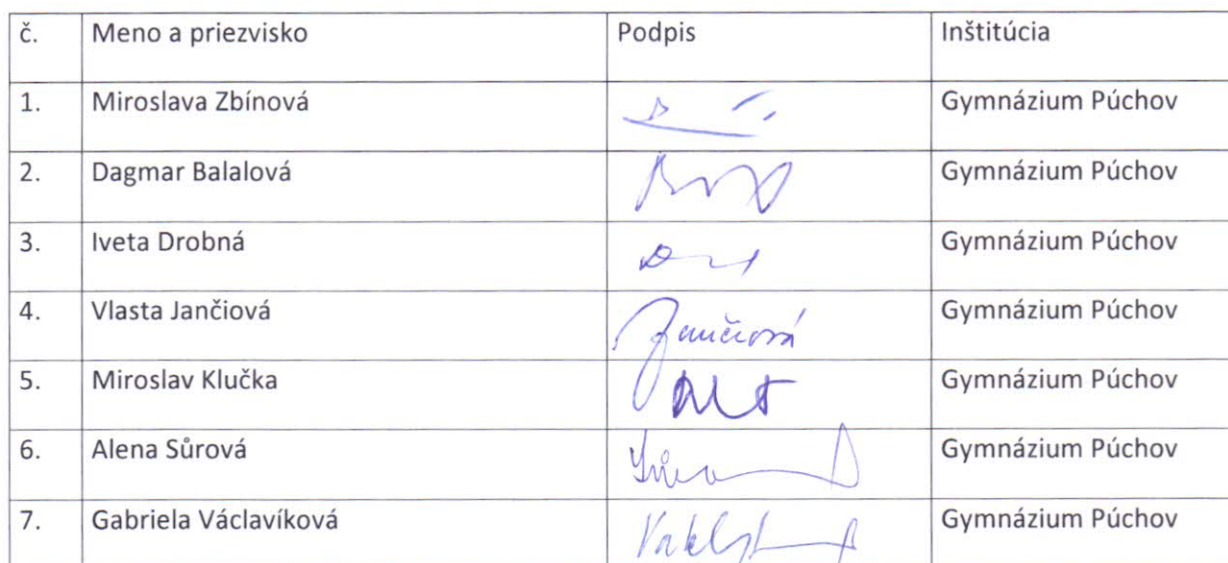 č. Meno a priezvisko Podpis Inštitúcia
1. Miroslava Zbínová Gymnázium Púchov
2. Dagmar Balalová Gymnázium Púchov
3. Iveta Drobná Gymnázium Púchov
4. Vlasta Jančiová Jančiová Gymnázium Púchov
5. Miroslav Klučka Gymnázium Púchov
6. Alena Sůrová Gymnázium Púchov
7. Gabriela Václavíková Gymnázium Púchov